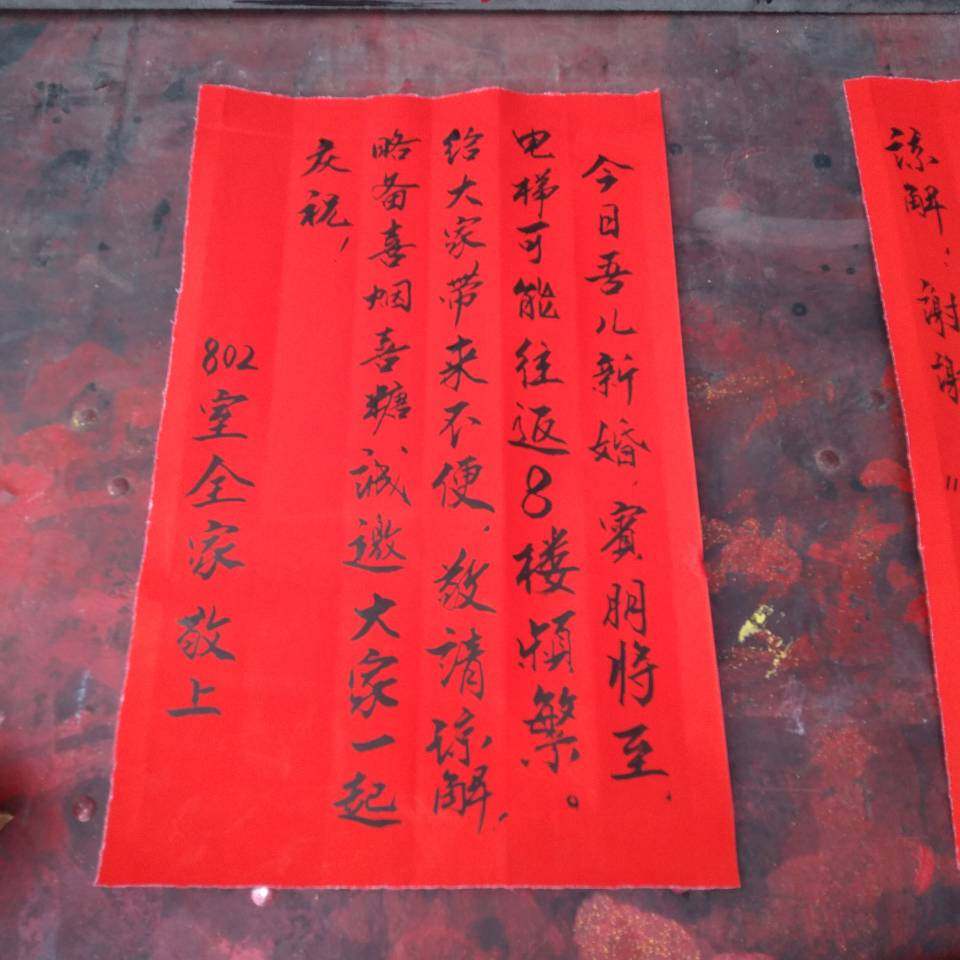 今日吾儿新婚,宾朋将至,
电梯可能往返8楼频繁。
给大家带来不便,敬请谅解,
略备喜烟喜糖诚邀大家一起
庆祝,
802室全家敬上
谅解:谢谢